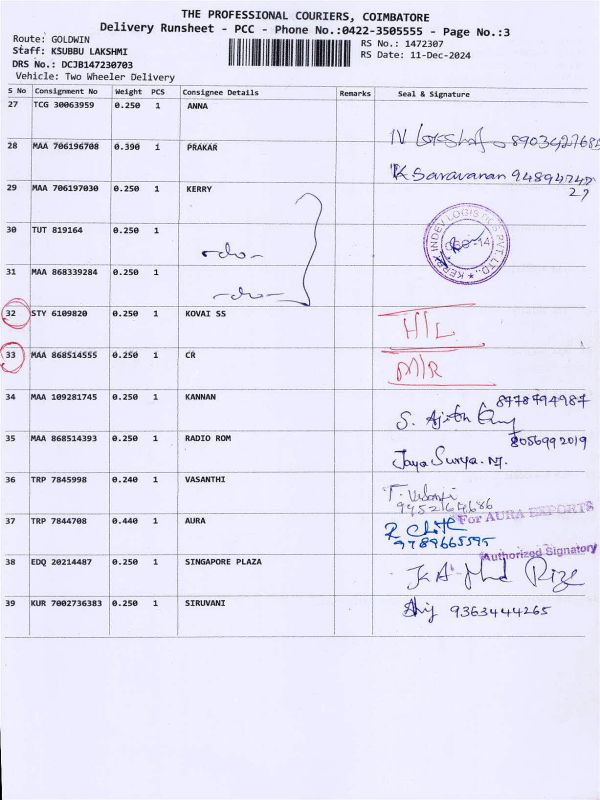 THE PROFESSIONAL COURIERS, COIMBATORE
Delivery Runsheet - PCC - Phone No.:0422-3505555 - Page No.:3
Route: GOLDWIN
RS No.: 1472307
Staff: KSUBBU LAKSHMI
RS Date: 11-Dec-2024
DRS No.: DCJB147230703
Vehicle: Two Wheeler Delivery
S No Consignment No Weight PCS Consignee Details Remarks Seal & Signature
27 TCG 30063959 0.250 1 ANNA
28 MAA 706196708 0.390 1 PRAKAR
K Saravanan 9489474727
29 MAA 706197030 0.250 1 KERRY
KERRY INDEV LOGISTICS PVT. LTD.
30 TUT 819164 0.250 1
-do-
31 MAA 868339284 0.250 1
-do-
32 STY 6109820 0.250 1 KOVAI SS H/L
33 MAA 868514555 0.250 1 CR M/R
34 MAA 109281745 0.250 1 KANNAN
8778794987
35 MAA 868514393 0.250 1 RADIO ROM 8056992019
Jaya Surya. M.
36 TRP 7845998 0.240 1 VASANTHI
37 TRP 7844708 0.440 1 AURA
For AURA EXPORTS
9789665595
Authorized Signatory
38 EDQ 20214487 0.250 1 SINGAPORE PLAZA
39 KUR 7002736383 0.250 1 SIRUVANI 9363444265